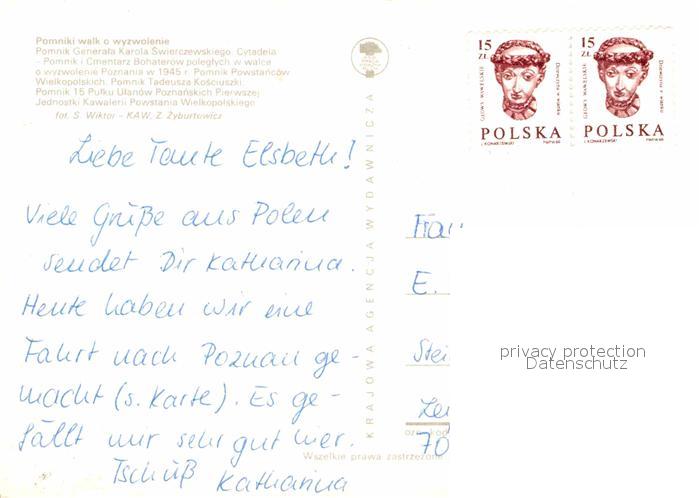 Pomniki walk o wyzwolenie
Pomnik Generała Karola Świerczewskiego. Cytadela
- Pomnik i Cmentarz Bohaterów poległych w walce
o wyzwolenie Poznania w 1945 r. Pomnik Powstańców
Wielkopolskich. Pomnik Tadeusza Kościuszki.
Pomnik 15 Pułku Ułanów Poznańskich Pierwszej
Jednostki Kawalerii Powstania Wielkopolskiego
fot. S. Wiktor - KAW, Z. Żyburtowicz
Liebe Tante Elsbeth!
Viele Grüße aus Polen
sendet Dir Katharina.
Heute haben wir eine
Fahrt nach Poznan ge-
macht (s. Karte). Es ge-
fällt mir sehr gut hier.
Tschüß Katharina
KRAJOWA AGENCJA WYDAWNICZA
Wszelkie prawa zastrzeżone
15 ZŁ
GŁOWY WAWELSKIE
Dziewczyna w wianku
POLSKA
PWPW 86
15 ZŁ
GŁOWY WAWELSKIE
Dziewczyna w wianku
POLSKA
PWPW 86
Frau
E.
Stei
70
privacy protection
Datenschutz